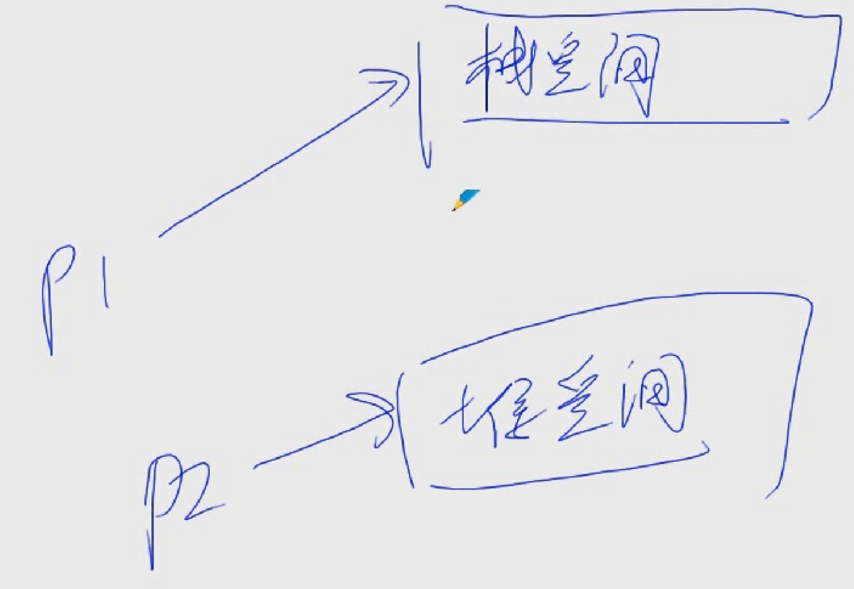 栈空间
p1
堆空间
p2